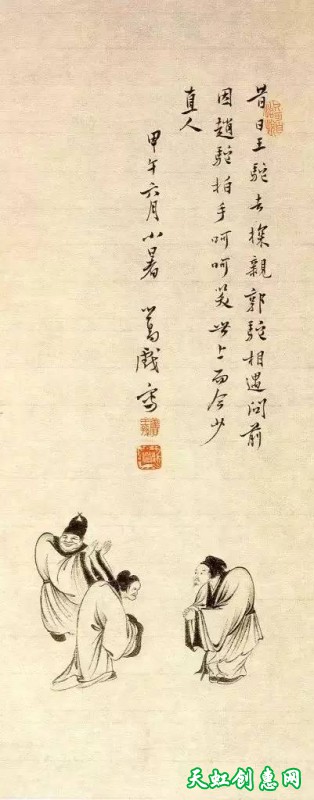 昔日王駝去探親郭駝相遇問前
因趙駝拍手呵呵笑世上而今少
直人
甲午六月小暑 心畬戲寫
天虹创惠网